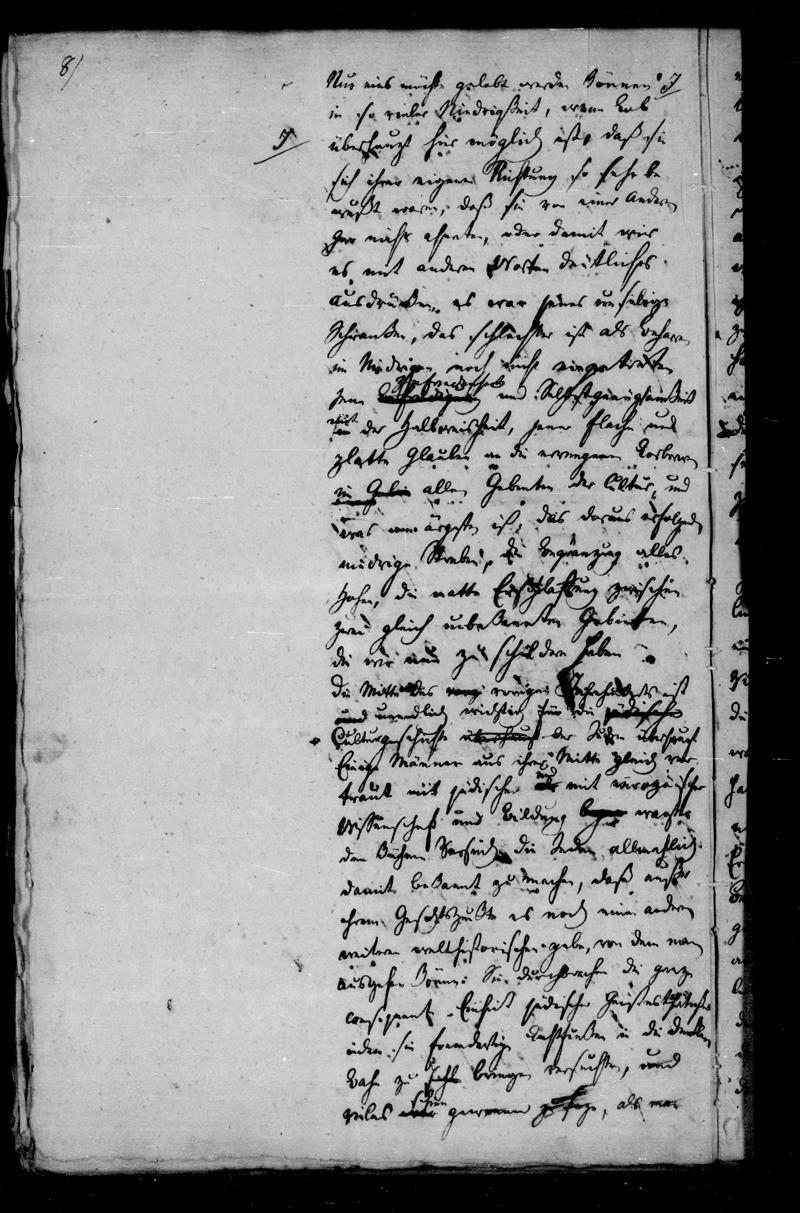 8)
Nur eins möchte gelobt werden können
in so vieler Niedrigkeit, wenn Lob
überhaupt hier möglich ist, daß sie
sich ihrer eigenen Richtung so sehr be
wußt waren, daß sie von einer Anderen
gar nicht ahneten, oder damit wir
es mit anderen Worten deutlicher
ausdrücken, es war jenes unselige
Schwanken, das schlechter ist als Beharren
im Niedrigen noch nicht eingetreten
jene und Selbstgenügsamkeit
der Halbweisheit, jener flache und
platte Glauben an die errungenen Lorbeeren
allen Gebieten der Cultur, und
was am ärgsten ist, das daraus erfolgende
niedrige Streben, die Begränzung alles
Hohen, die matte Erschlaffung zwischen
zwei gleich unbekannten Gebieten,
die wir nun zu schildern haben
Die Mitte des vorigen Jahrhunderts ist
unendlich wichtig für die jüdische
Culturgeschichte überhaupt der Juden überhaupt
Einige Männer aus ihrer Mitte gleich ver
traut mit jüdischer und mit europäischer
Wissenschaft und Bildung wagten
den kühnen Versuch die Juden allmählich
damit bekannt zu machen, daß außer
ihrem es noch einen andern
weitern welthistorischen gebe, von dem man
ausgehen könne. Sie durchbrachen die ganze
consequente Einheit jüdischer
indem sie fremdartige in die
Bahn zu bringen versuchten, und
vieles schien gewonnen, als man